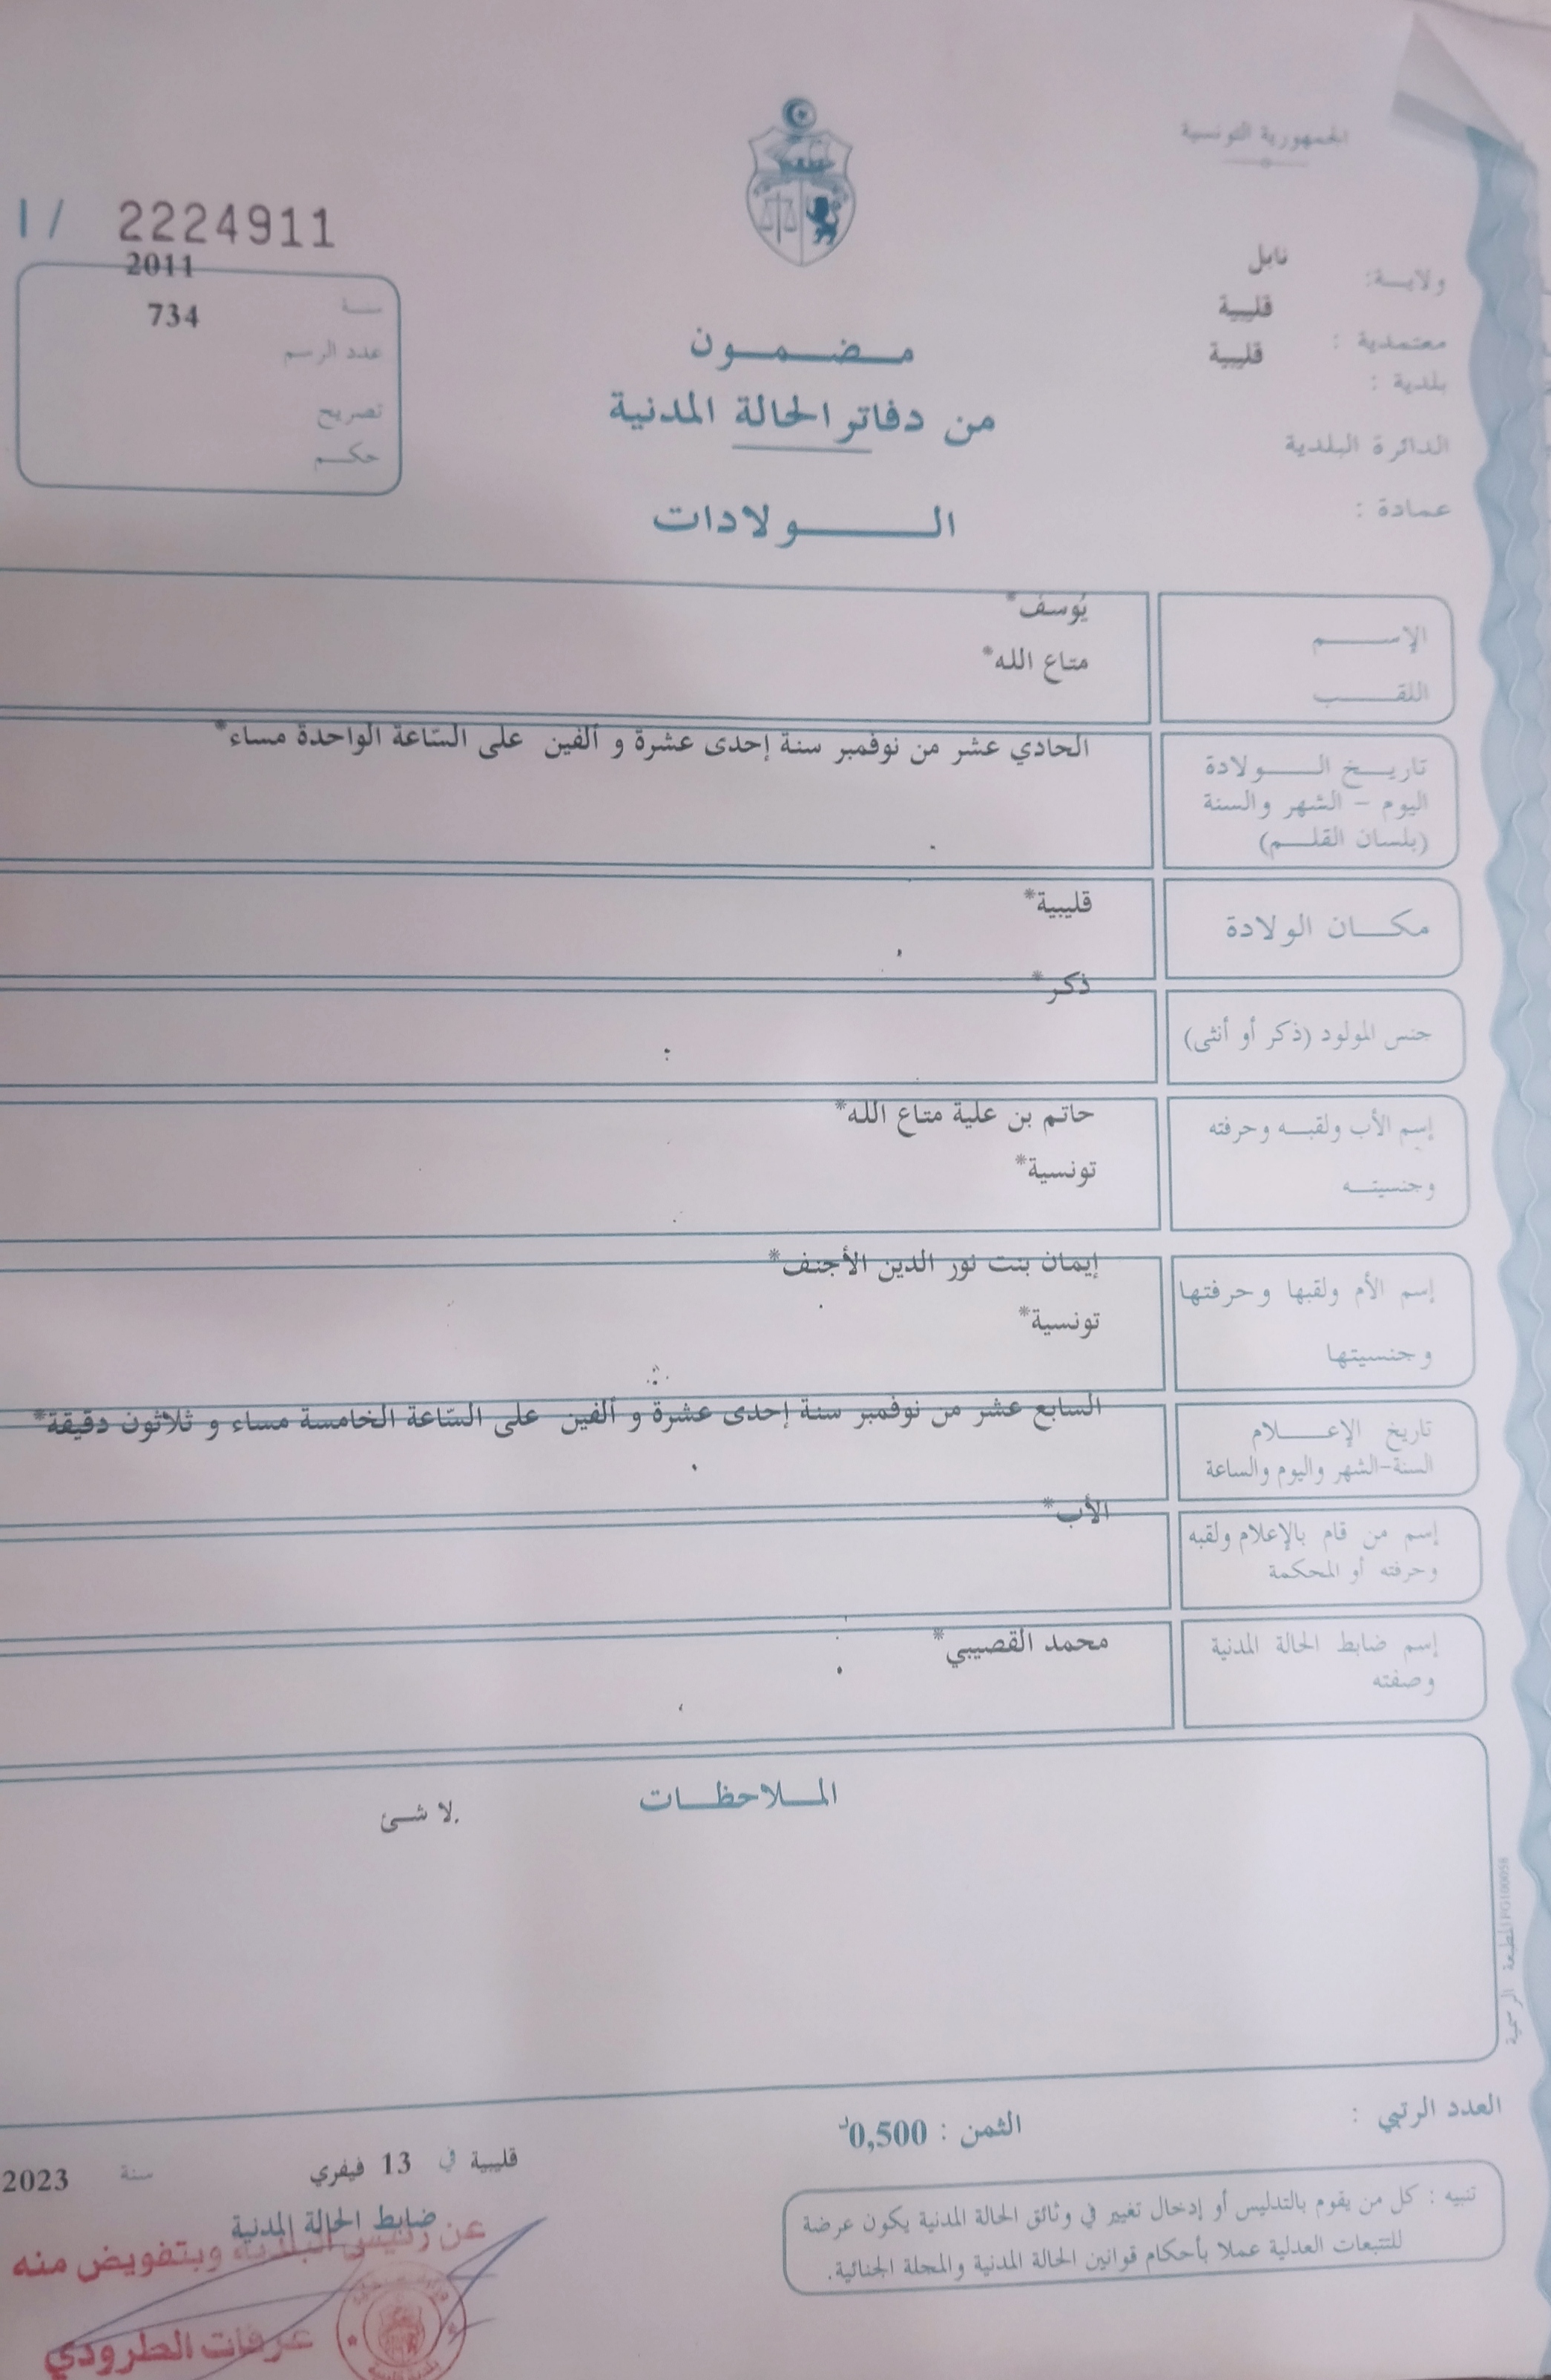 الجمهورية التونسية
ولايـــة: نابل
معتمدية : قليبية
بلدية : قليبية
الدائرة البلدية
عمادة :
I / 2224911
2011
سنــة
734
عدد الرسم
تصريح
حكــم
مـضـمـون
من دفاتر الحالة المدنية
الـولادات
الإســـم
يُوسف*
اللقـــب
متاع الله*
تاريــخ الـــولادة
اليوم - الشهر والسنة
(بلسان القلــم)
الحادي عشر من نوفمبر سنة إحدى عشرة و ألفين على السّاعة الواحدة مساء*
مكـــان الولادة
قليبية*
جنس المولود (ذكر أو أنثى)
ذكر*
إسم الأب ولقبــه وحرفته
حاتم بن علية متاع الله*
وجنسيتــه
تونسية*
إسم الأم ولقبها وحرفتها
إيمان بنت نور الدين الأجنف*
وجنسيتها
تونسية*
تاريخ الإعــــلام
السنة-الشهر واليوم والساعة
السابع عشر من نوفمبر سنة إحدى عشرة و ألفين على السّاعة الخامسة مساء و ثلاثون دقيقة*
إسم من قام بالإعلام ولقبه
وحرفته أو المحكمة
الأب*
إسم ضابط الحالة المدنية
وصفته
محمد القصيبي*
المــلاحظــات
لا شئ.
المطبعة الرسمية
العدد الرتبي :
الثمن : 0,500د
قليبية في 13 فيفري سنة 2023
ضابط الحالة المدنية
عن رئيس البلدية وبتفويض منه
عرفات الطرودي
تنبيه : كل من يقوم بالتدليس أو إدخال تغيير في وثائق الحالة المدنية يكون عرضة
للتتبعات العدلية عملا بأحكام قوانين الحالة المدنية والمجلة الجنائية.